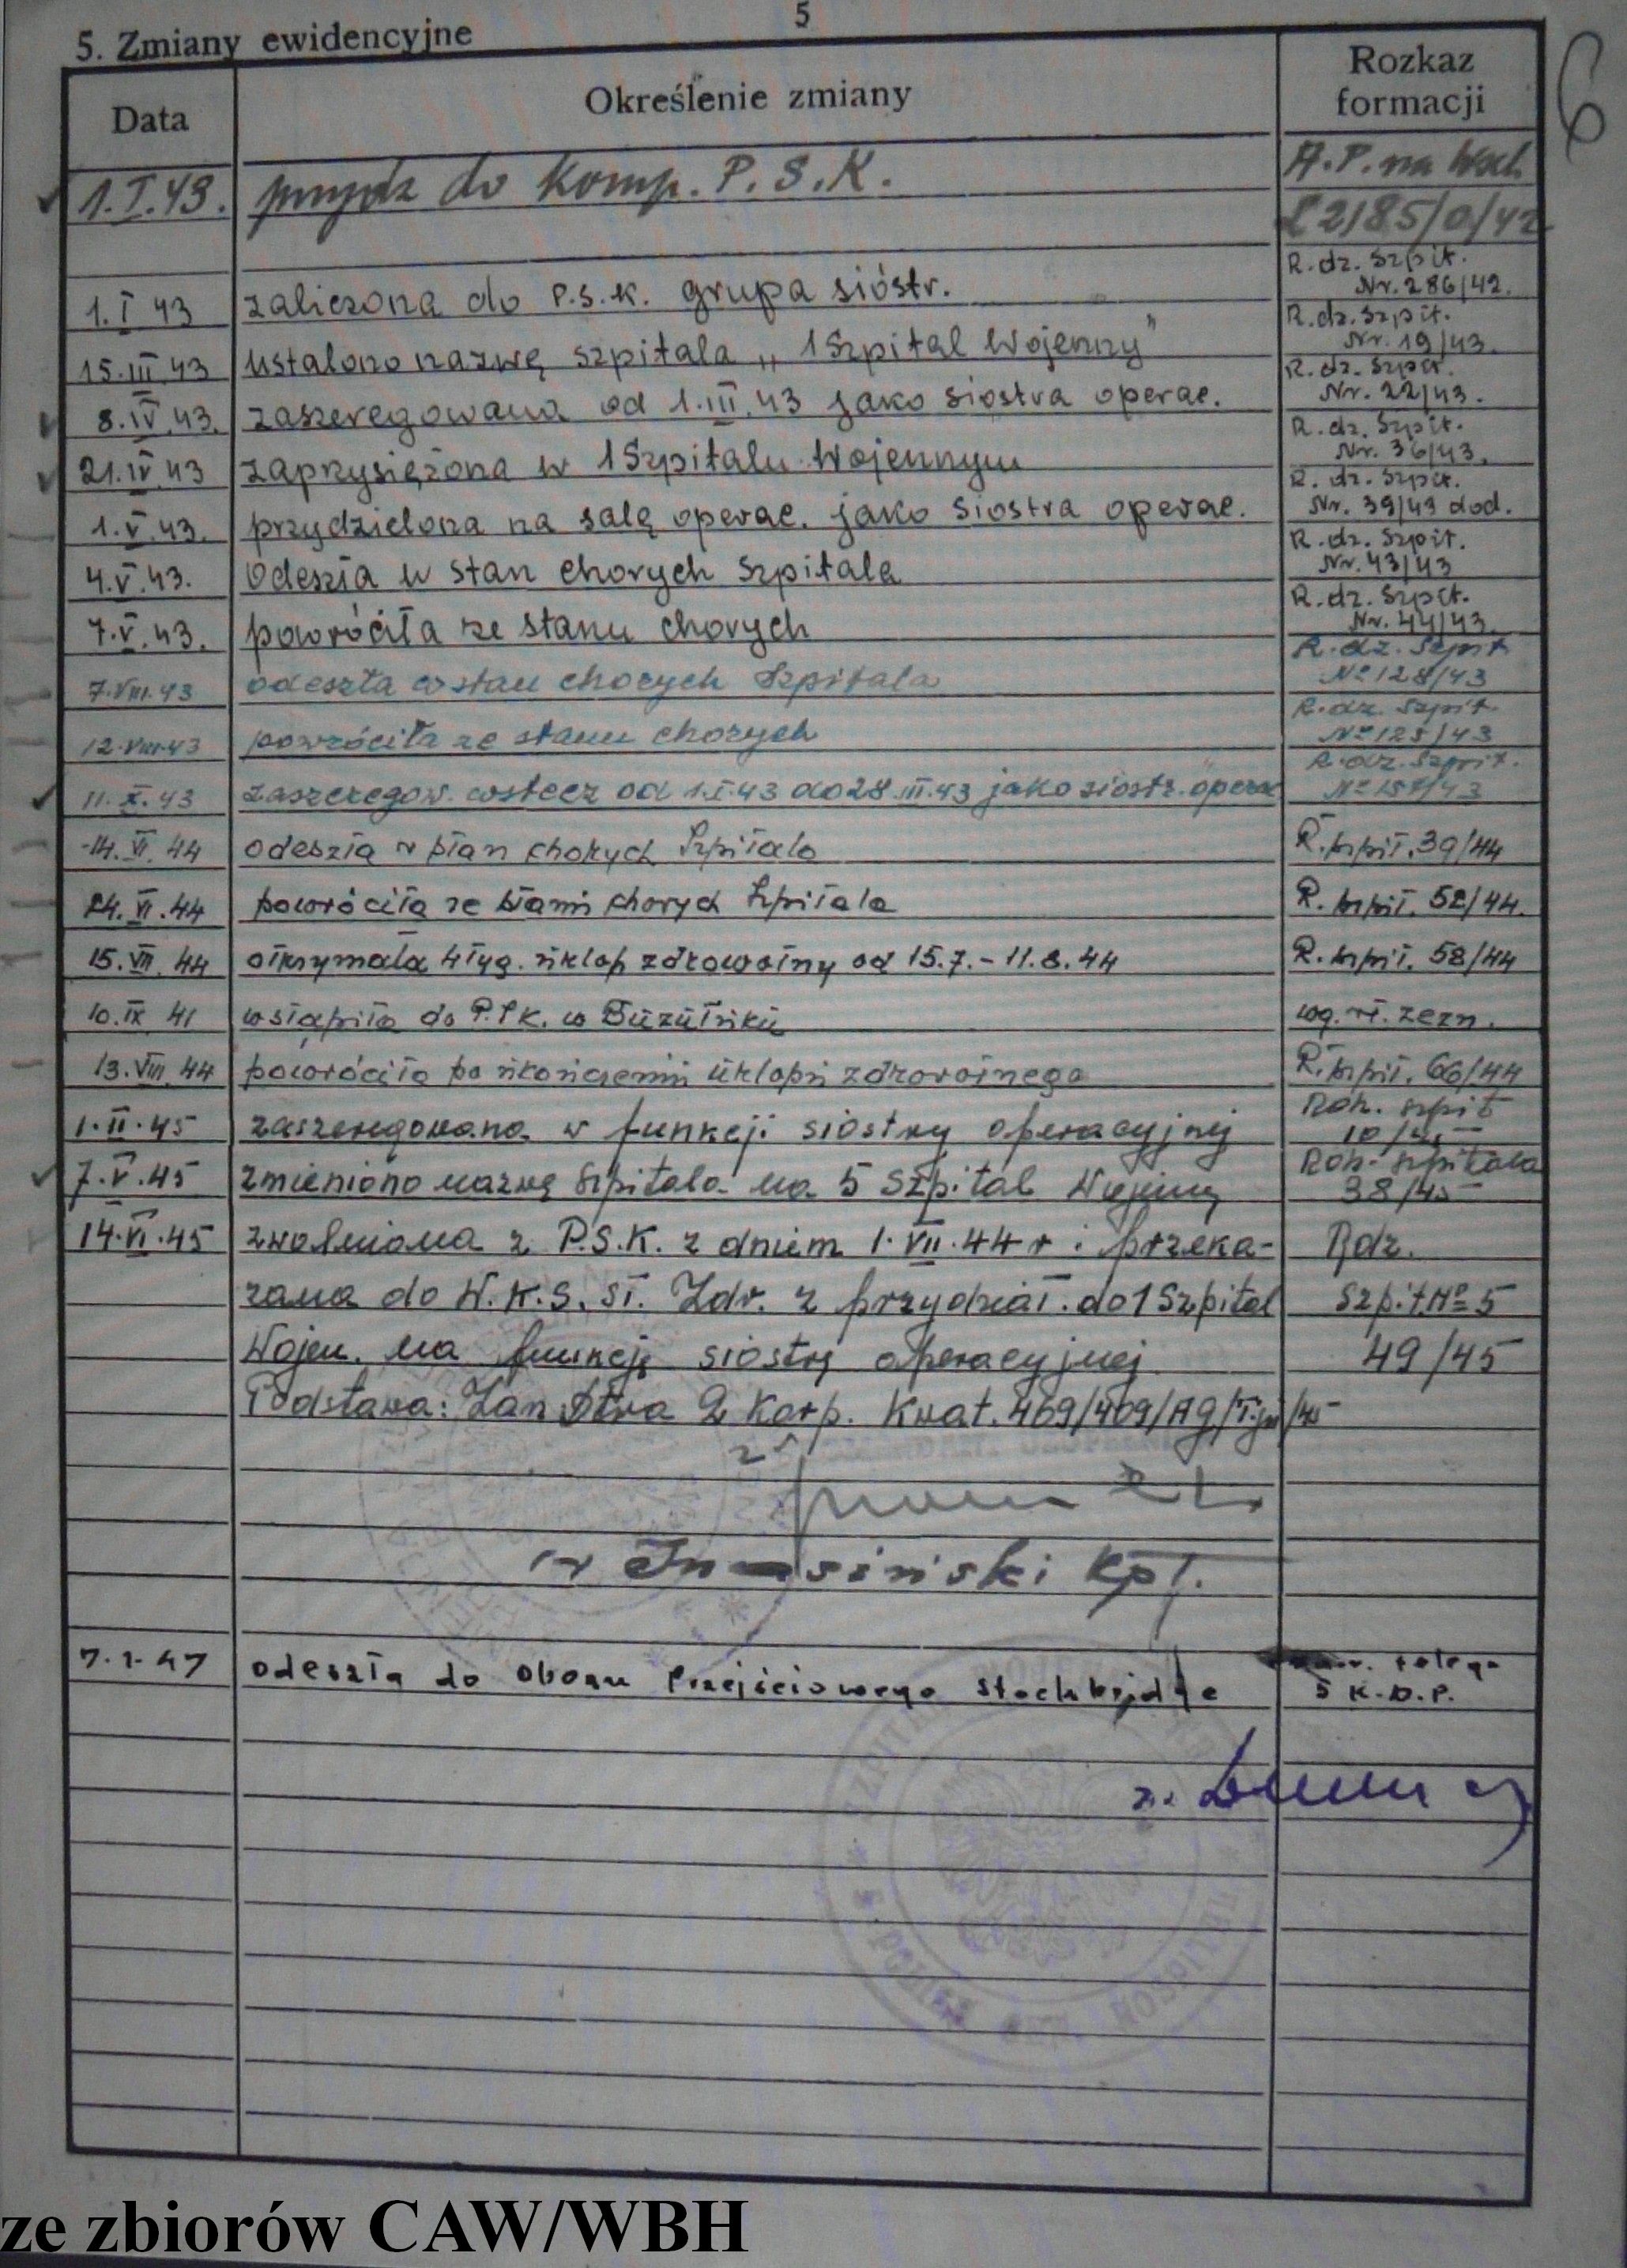 5
6
5. Zmiany ewidencyjne
Data Określenie zmiany Rozkaz formacji
1.I.43. przydz do Komp. P.S.K. A.P. na Wsch.
L 2185/0/42
1.I 43 zaliczona do P.S.K. grupa sióstr. R.dz. Szpit. Nr. 286/42.
15.III.43 ustalono nazwę szpitala „1 Szpital Wojenny" R.dz. Szpit. Nr. 19/43.
8.IV.43. zaszeregowana od 1.III.43 jako siostra operac. R.dz. Szpit. Nr. 22/43.
21.IV.43 zaprzysiężona w 1 Szpitalu Wojennym R.dz. Szpit. Nr. 36/43.
1.V.43. przydzielona na salę operac. jako siostra operac. R.dz. Szpit. Nr. 39/43 dod.
4.V.43. Odeszła w stan chorych Szpitala R.dz. Szpit. Nr. 43/43
7.V.43. powróciła ze stanu chorych R.dz. Szpit. Nr. 44/43.
7.VIII.43 odeszła w stan chorych Szpitala R.dz. Szpit Nº 128/43
12.VIII.43 powróciła ze stanu chorych R.dz. Szpit. Nº 125/43
11.X.43 zaszeregow. wstecz od 1.I.43 do 28.III.43 jako siostr. operac R.dz. Szpit.
14.VI.44 odeszła w stan chorych Szpitala R. szpit. 39/44
24.VI.44 powróciła ze stanu chorych Szpitala R. szpit. 52/44.
15.VII.44 otrzymała 4 tyg. urlop zdrowotny od 15.7.-11.8.44 R. szpit. 58/44
10.IX 41 wstąpiła do P.S.K. w Buzułuku wg. wł. zezn.
13.VIII.44 powróciła po ukończeniu urlopu zdrowotnego R. szpit. 66/44
1.II.45 zaszeregowana w funkcji siostry operacyjnej Roz. szpit 10/45
7.V.45 zmieniono nazwę Szpitala na 5 Szpital Wojenny Roz. szpitala 38/45
14.VI.45 zwolniona z P.S.K. z dniem 1.VII.44 r i przeka- Rdz.
zana do W.K.S. Sł. Zdr. z przydział. do 1 Szpital Szpit. Nº 5
Wojen. na funkcję siostry operacyjnej 49/45
Podstawa: Dtwa 2 Korp. Kwat. 469/409/AG/
kpt.
7.1.47 odeszła do Obozu Przejściowego Stockbridge telegr
5 K.D.P.
SZPITAL
POLISH HOSPITAL
ze zbiorów CAW/WBH